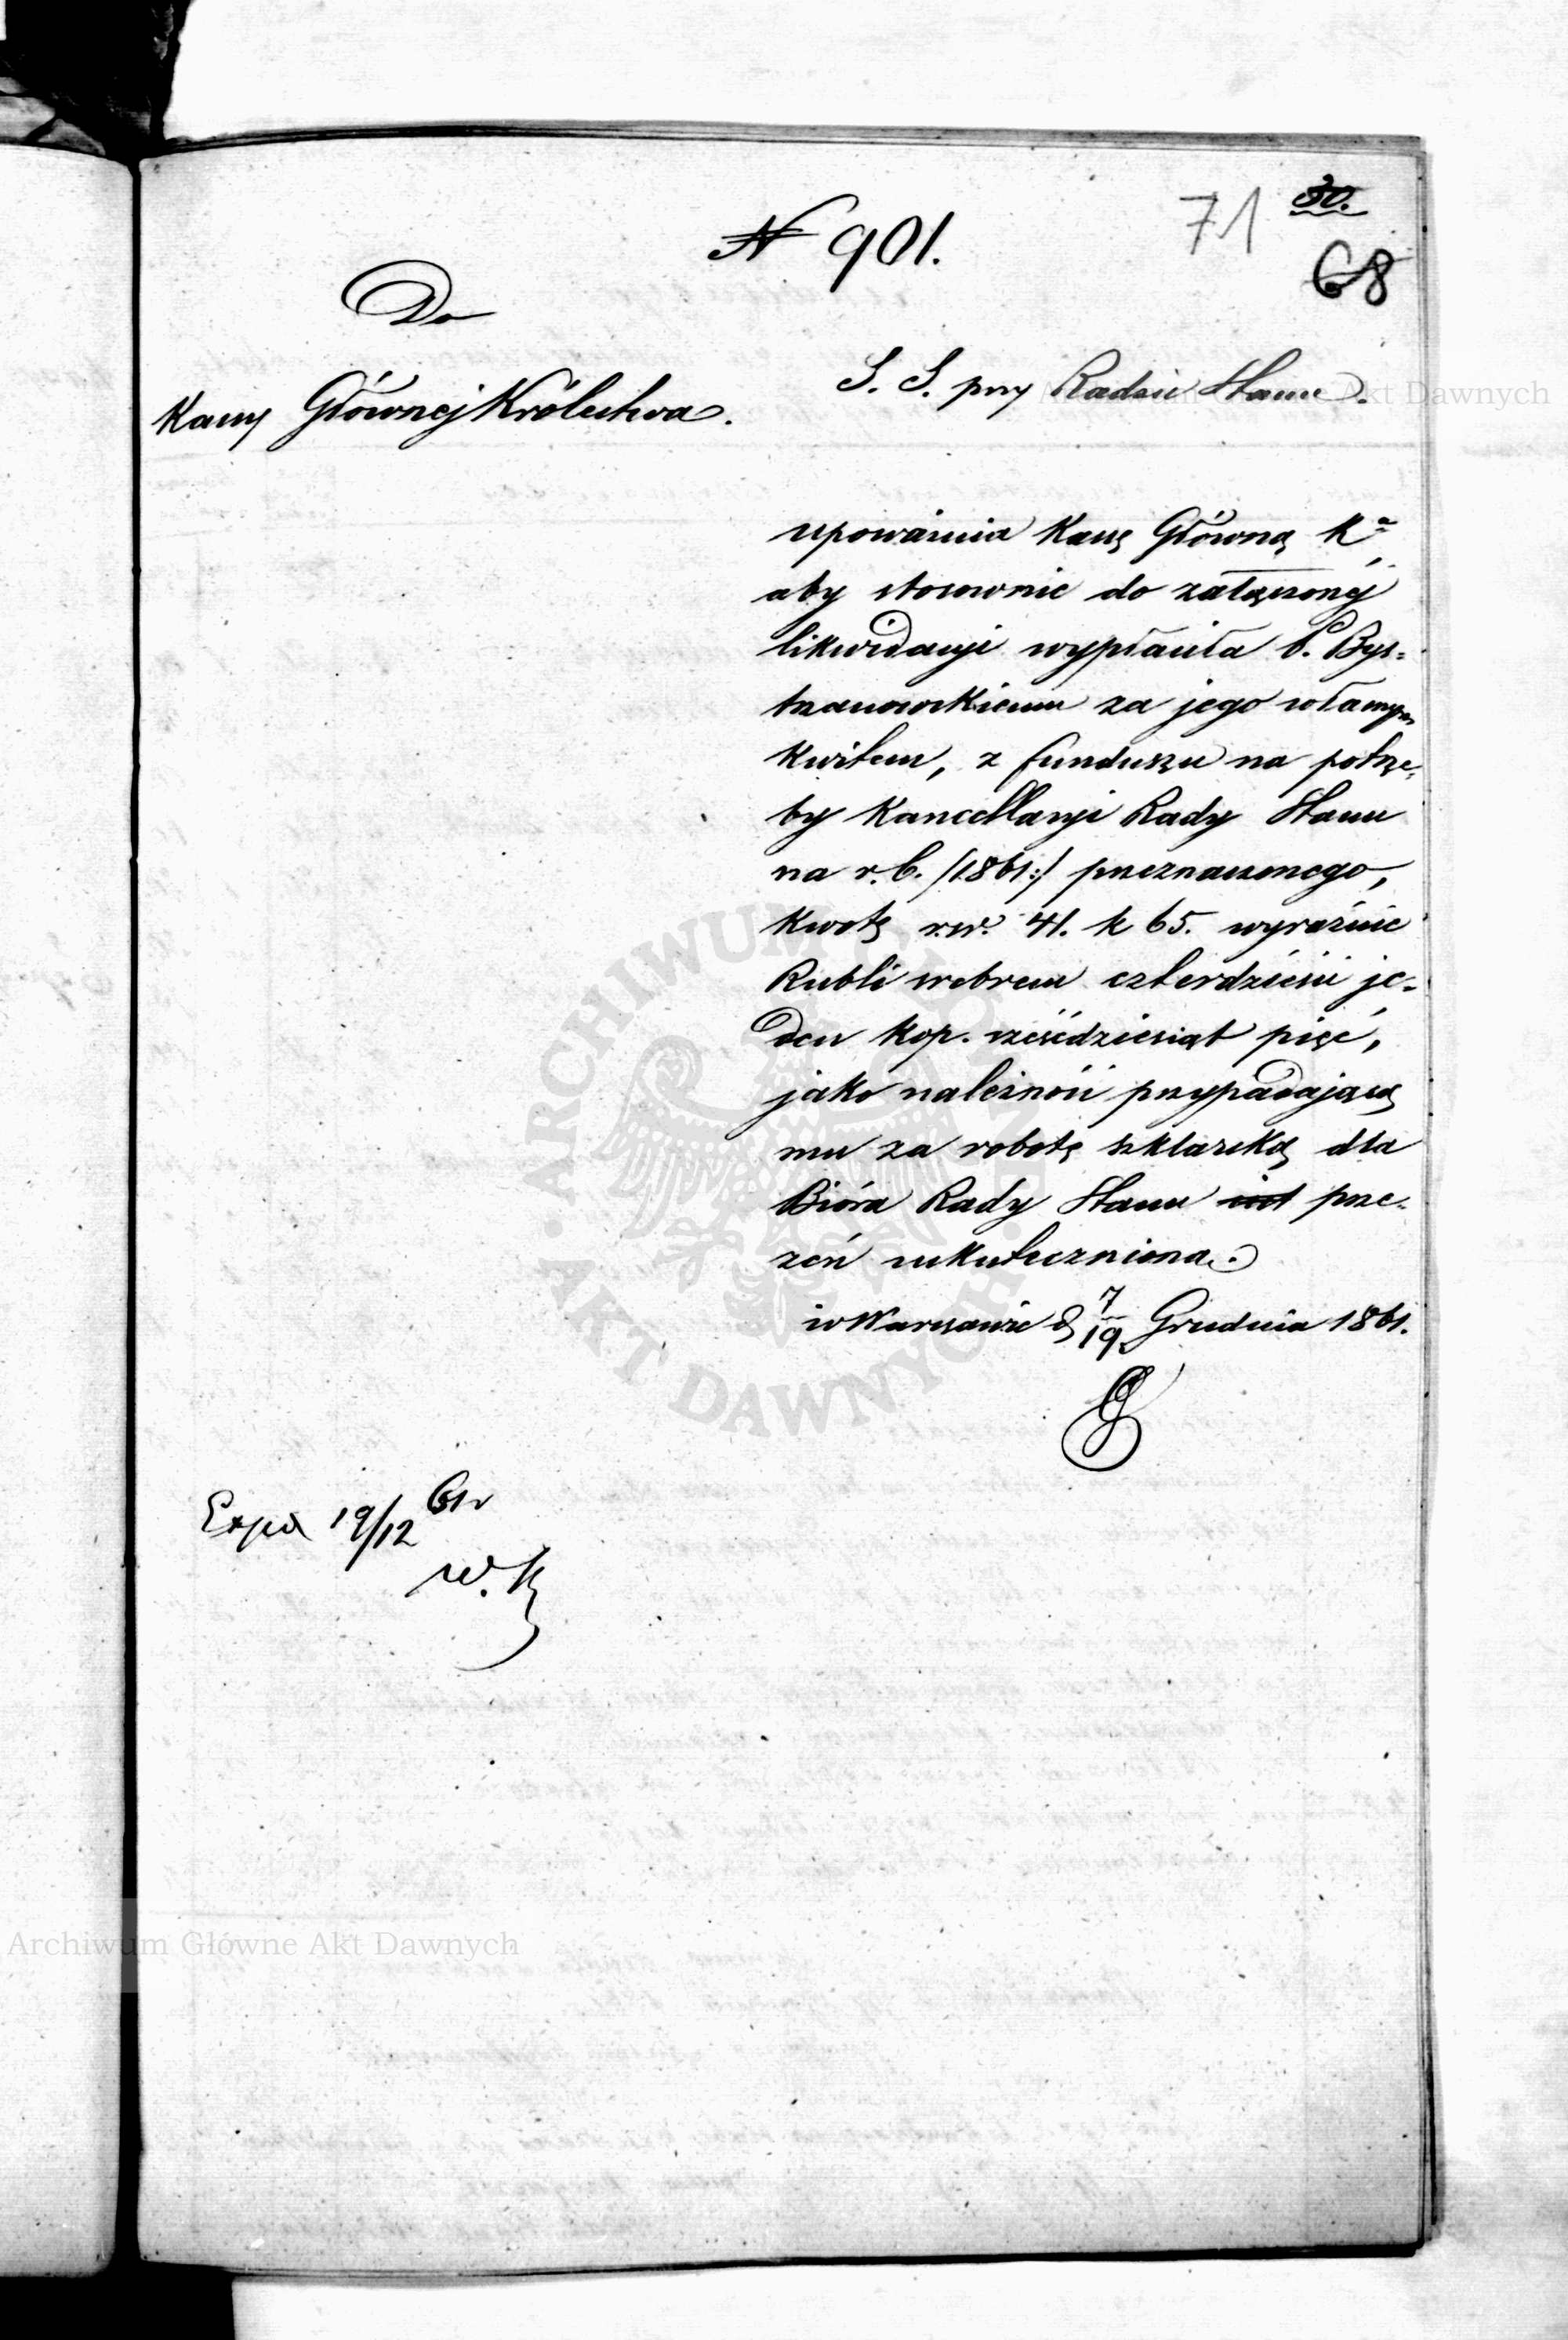 N 901.
71
30.
68
Do
Kassy Głównej Królestwa.
S. S. przy Radzie Stanu.
upoważnia Kassę Główną Kа
aby stosownie do załączonej
likwidacyi wypłaciła P. Bys=
trzanowskiemu za jego własnym
kwitem, z funduszu na potrze-
by Kancellaryi Rady Stanu
na r. b. /:1861:/ przeznaczonego,
kwotę r.s. 41. k 65. wyraźnie
Rubli srebrem czterdzieści je-
den kop. sześćdziesiąt pięć,
jako należność przypadającą
mu za robotę szklarską dla
Bióra Rady Stanu przez-
zeń uskutecznioną.
w Warszawie d 7/19 Grudnia 1861.
Exped 19/12 61 r
W. K
Archiwum Główne Akt Dawnych
ARCHIWUM GŁÓWNE AKT DAWNYCH